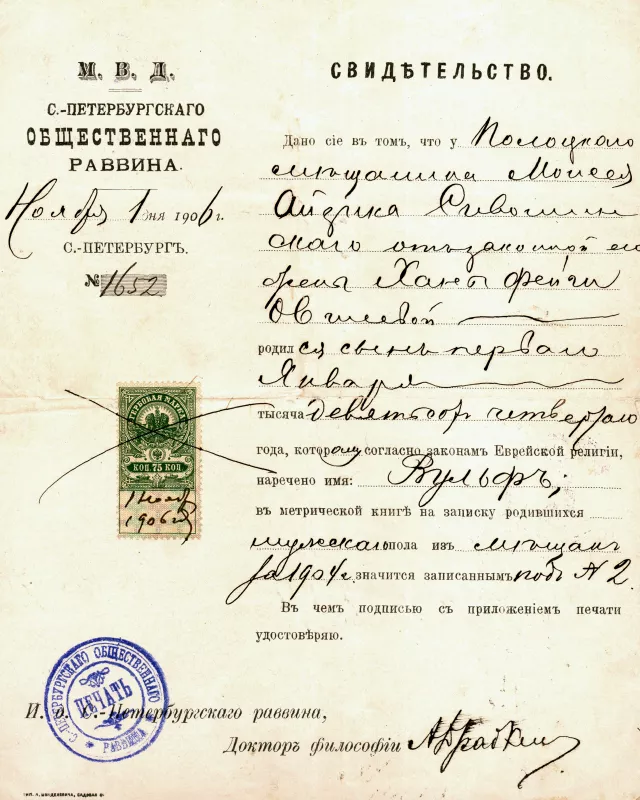 М. В. Д.
С.-ПЕТЕРБУРГСКАГО
ОБЩЕСТВЕННАГО
РАВВИНА.
Ноября 1 дня 1906 г.
С.-ПЕТЕРБУРГЪ.
№ 1652
ГЕРБОВАЯ МАРКА
КОП. 75 КОП
1 Нояб
1906 г.
СВИДѢТЕЛЬСТВО.
Дано сіе въ томъ, что у Полоцкаго
мѣщанина Моисея
Айзика Сивошин
скаго отъ законной его
жены Ханы Фейги
Овшіевой
родился сынъ перваго
Января
тысяча девятьсот четвертаго
года, которому согласно законамъ Еврейской религіи,
наречено имя: Вульфъ;
въ метрической книгѣ на записку родившихся
мужскаго пола изъ мѣщанъ
за 1904 г. значится записаннымъ подъ № 2.
Въ чемъ подписью съ приложеніемъ печати
удостовѣряю.
С.-ПЕТЕРБУРГСКАГО ОБЩЕСТВЕННАГО
ПЕЧАТЬ
РАВВИНА
И. о. С.-Петербургскаго раввина,
Докторъ философіи